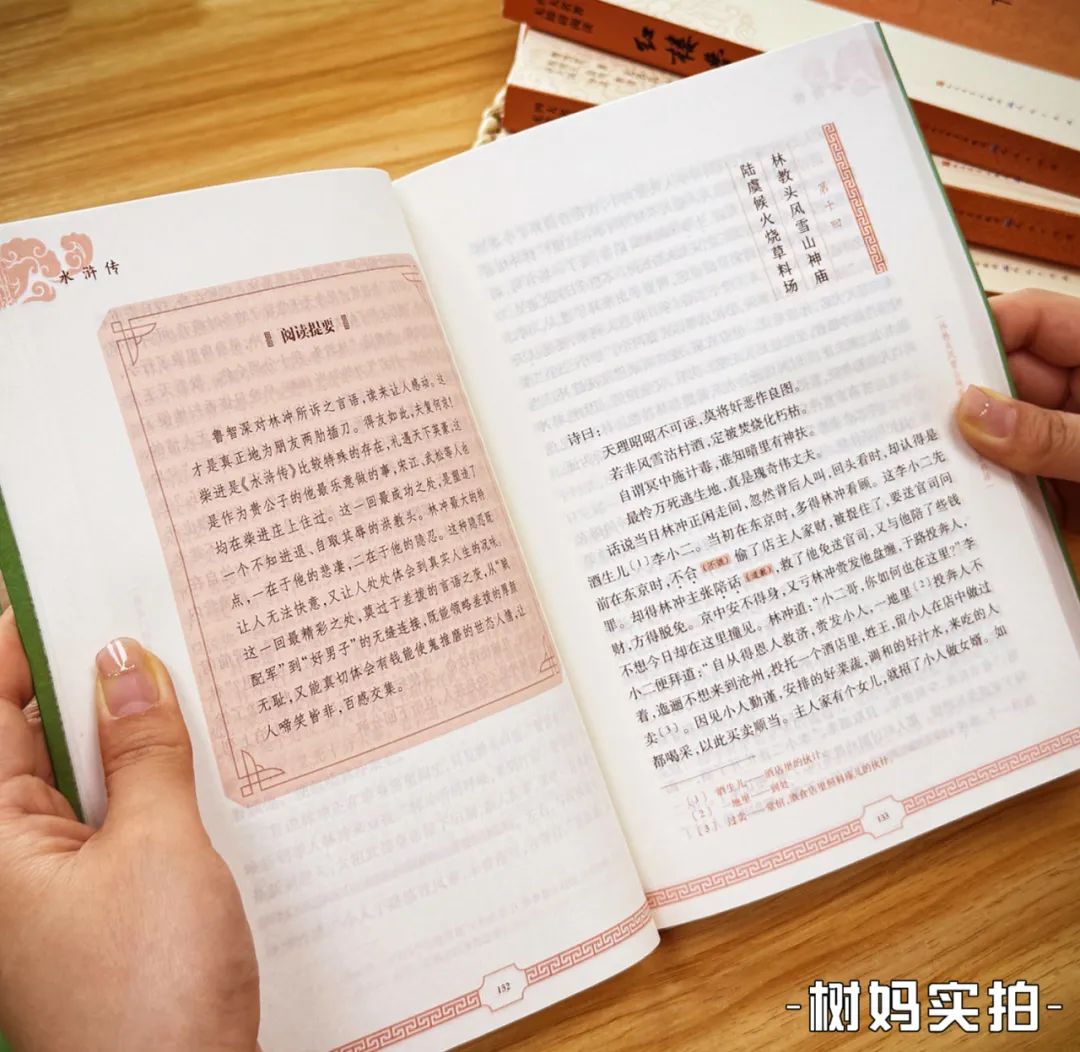 水浒传
阅读提要
鲁智深对林冲所诉之言语,读来让人感动。这
才是真正地为朋友两肋插刀。得友如此,夫复何求!
柴进是《水浒传》比较特殊的存在,礼遇天下英豪,这
是作为贵公子的他最乐意做的事,宋江、武松等人也
均在柴进庄上住过。这一回最成功之处,是塑造了
一个不知进退、自取其辱的洪教头。林冲最大的特
点,一在于他的悲凄,二在于他的隐忍。这种隐忍既
让人无法快意,又让人处处体会到真实人生的况味。
这一回最精彩之处,莫过于差拨的言语之变,从“贼
配军”到“好男子”的无缝连接,既能领略差拨的厚颜
无耻,又能真切体会有钱能使鬼推磨的世态人情,让
人啼笑皆非,百感交集。
132
第十回
林教头风雪山神庙
陆虞候火烧草料场
诗曰:
天理昭昭不可诬,莫将奸恶作良图。
若非风雪沽村酒,定被焚烧化朽枯。
自谓冥中施计毒,谁知暗里有神扶。
最怜万死逃生地,真是瑰奇伟丈夫。
话说当日林冲正闲走间,忽然背后人叫,回头看时,却认得是
酒生儿(1)李小二。当初在东京时,多得林冲看顾。这李小二先
前在东京时,不合 偷了店主人家财,被捉住了,要送官司问
罪。却得林冲主张陪话 ,救了他免送官司,又与他陪了些钱
财,方得脱免。京中安不得身,又亏林冲赍发他盘缠,于路投奔人,
不想今日却在这里撞见。林冲道:“小二哥,你如何也在这里?”李
小二便拜道:“自从得恩人救济,赍发小人,一地里(2)投奔人不
着,迤逦不想来到沧州,投托一个酒店里,姓王,留小人在店中做过
卖(3)。因见小人勤谨,安排的好菜蔬,调和的好汁水,来吃的人
都喝采,以此买卖顺当。主人家有个女儿,就招了小人做女婿。如
(1) 酒生儿——酒店里的伙计。
(2) 地里——到处。
(3) 过卖——堂倌,酒食店里招料座儿的伙计。
133
红楼梦
-树妈实拍-